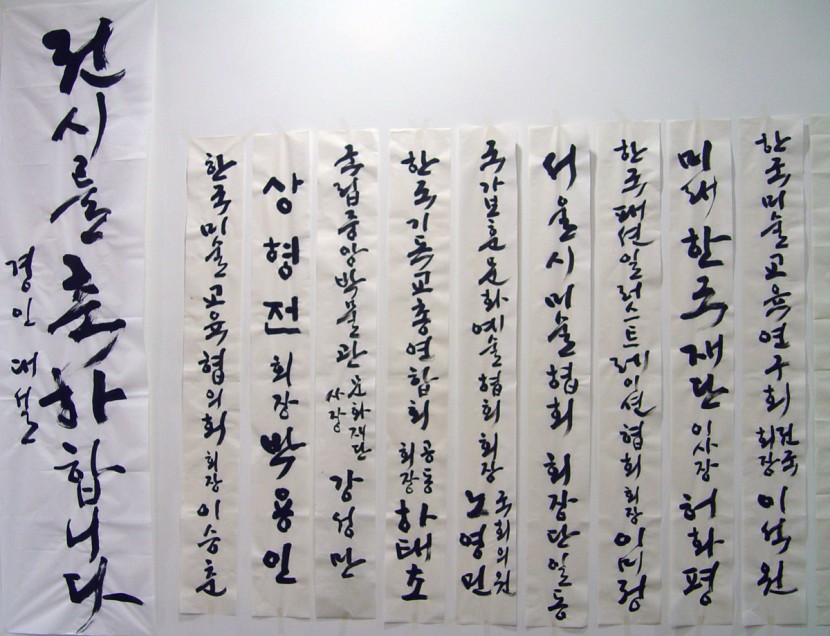 전시를 축하합니다
경인
한국미술교육협의회 회장 이승훈
상형전 회장 박용인
국립중앙박물관 문화재단 사장 강성만
한국기독교총연합회 공동회장 하태초
국가보훈문화예술협회 회장 국회의원 노영민
서울시미술협회 회장단 일동
한국패션일러스트레이션협회 회장 이미정
미래한국재단 이사장 허화평
한국미술교육연구회 전국회장 이석원